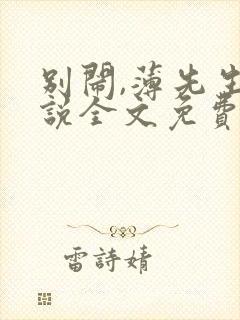 别鬧,薄先生
説全文免費
雷詩婧